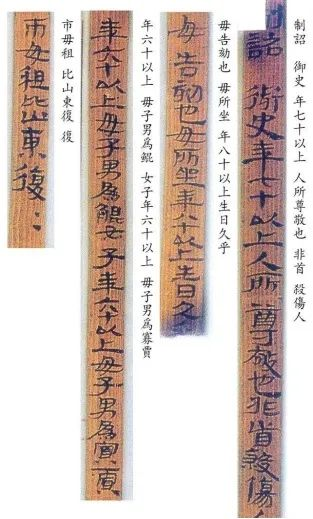 制詔 御史 年七十以上 人所尊敬也 非首 殺傷人
詔御史年七十以上人所尊敬也非首殺傷
毋告劾也 毋所坐 年八十以上生日久乎
毋告劾也毋所坐年八十以上生日久乎
年六十以上 毋子男爲鯤 女子年六十以上 毋子男爲寡賈
年六十以上毋子男爲鯤女子年六十以上毋子男爲寡賈
市毋租 比山東復 復
市毋租比山東復